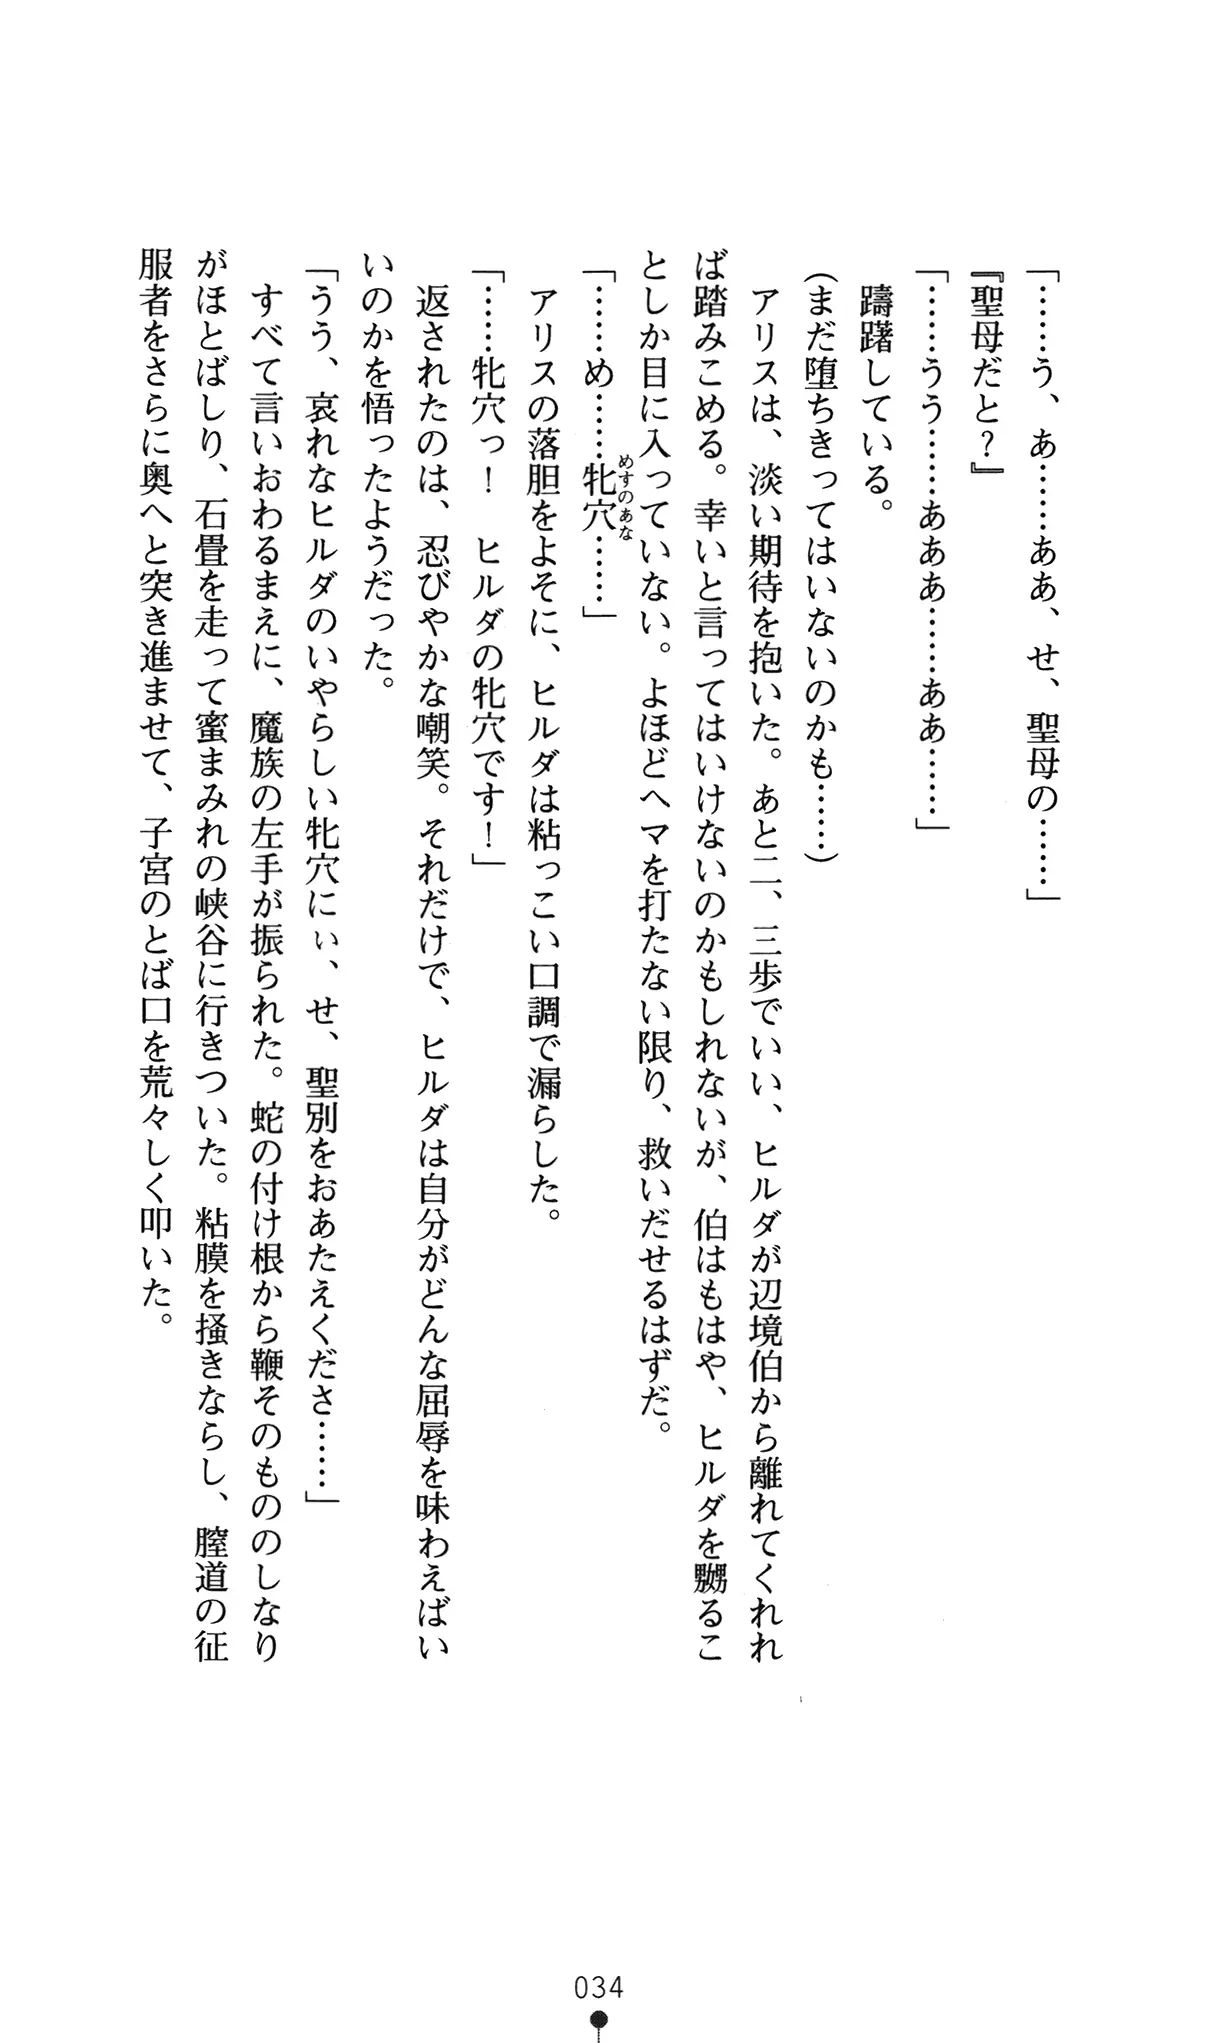 「……う、あ……ああ、せ、聖母の……」
『聖母だと？』
「……うう……あああ……ああ……」
　躊躇している。
（まだ堕ちきってはいないのかも……）
　アリスは、淡い期待を抱いた。あと二、三歩でいい、ヒルダが辺境伯から離れてくれれ
ば踏みこめる。幸いと言ってはいけないのかもしれないが、伯はもはや、ヒルダを嬲るこ
としか目に入っていない。よほどヘマを打たない限り、救いだせるはずだ。
「……め……牝穴……」
めすのあな
　アリスの落胆をよそに、ヒルダは粘っこい口調で漏らした。
「……牝穴っ！　ヒルダの牝穴です！」
　返されたのは、忍びやかな嘲笑。それだけで、ヒルダは自分がどんな屈辱を味わえばい
いのかを悟ったようだった。
「うう、哀れなヒルダのいやらしい牝穴にぃ、せ、聖別をおあたえくださ……」
　すべて言いおわるまえに、魔族の左手が振られた。蛇の付け根から鞭そのもののしなり
がほとばしり、石畳を走って蜜まみれの峡谷に行きついた。粘膜を掻きならし、膣道の征
服者をさらに奥へと突き進ませて、子宮のとば口を荒々しく叩いた。
034